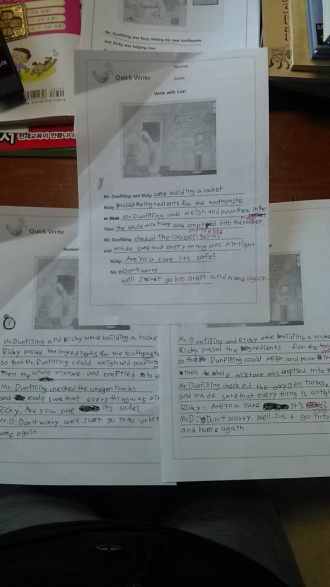 Mr. Dunfilling was busy mixing his new toothpaste
and Ricky was helping him.
Quick Write
Name
Date
Write with Cue!
Mr. Dunfilling and Ricky were building a rocket
Ricky passed the ingredients for the toothpaste
so that Mr. Dunfilling could weigh and pour them in the
Then the whole mixture was emptied into the rocket.
Mr. Dunfilling checked the oxygen tanks
and made sure that everything was airtight
Ricky: Are you sure it's safe?
Mr. D: Don't worry
we'll just go into orbit and home again.
Quick Write
Mr. Dunfilling and Ricky were building a rocke
Ricky passed the ingredients for the toothpaste
so that Mr. Dunfilling could weigh and pour
Then the whole mixture was emptied
Mr. Dunfilling checked the oxygen tanks
and made sure that everything was air
Ricky: Are you sure it's safe?
Mr. D: Don't worry we'll just go into orbit
again
Mr. Dunfilling and Ricky were building a rocke
Ricky passed the ingredients for the
so that Mr. Dunfilling could weigh and pour
Then whole mixture was emptied into t
Mr Dunfilling checked the oxygen tanks
and made sure that everything is airtigh
Ricky: Are you sure it's
Mr. D: Don't worry we'll just go into orbit
and home again